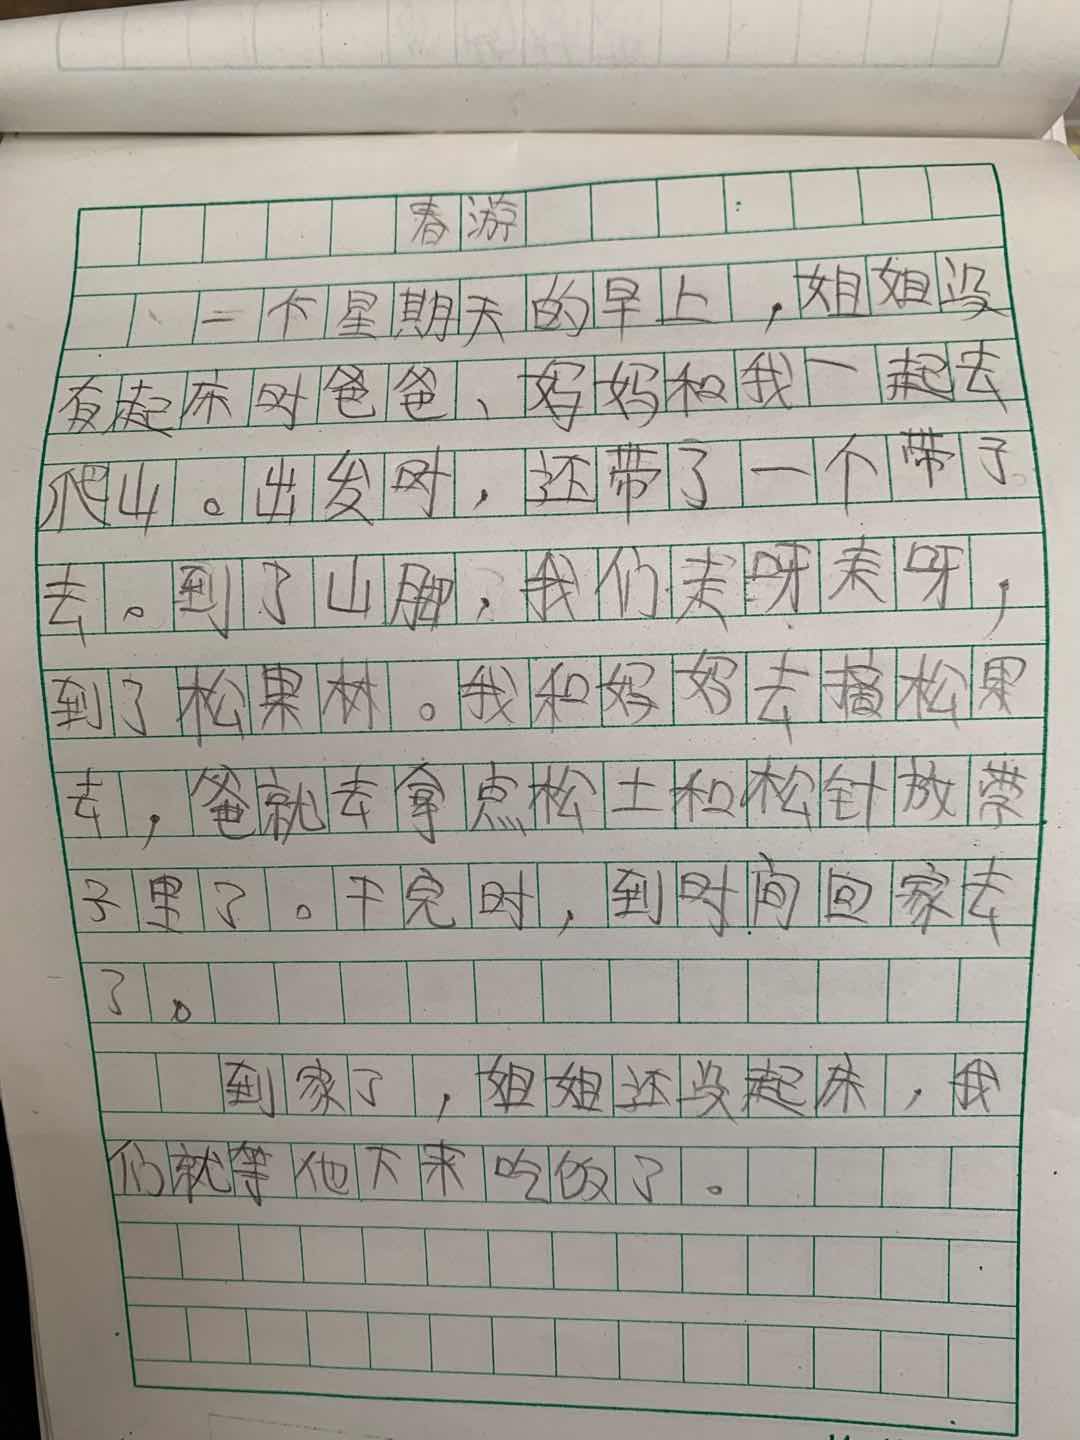 春游
二个星期天的早上，姐姐没
有起床时爸爸、妈妈和我一起去
爬山。出发时，还带了一个带子
去。到了山脚，我们走呀走呀，
到了松果林。我和妈妈去摘松果
去，爸就去拿点松土和松针放带
子里了。干完时，到时间回家去
了。
到家了，姐姐还没起床，我
们就等他下来吃饭了。